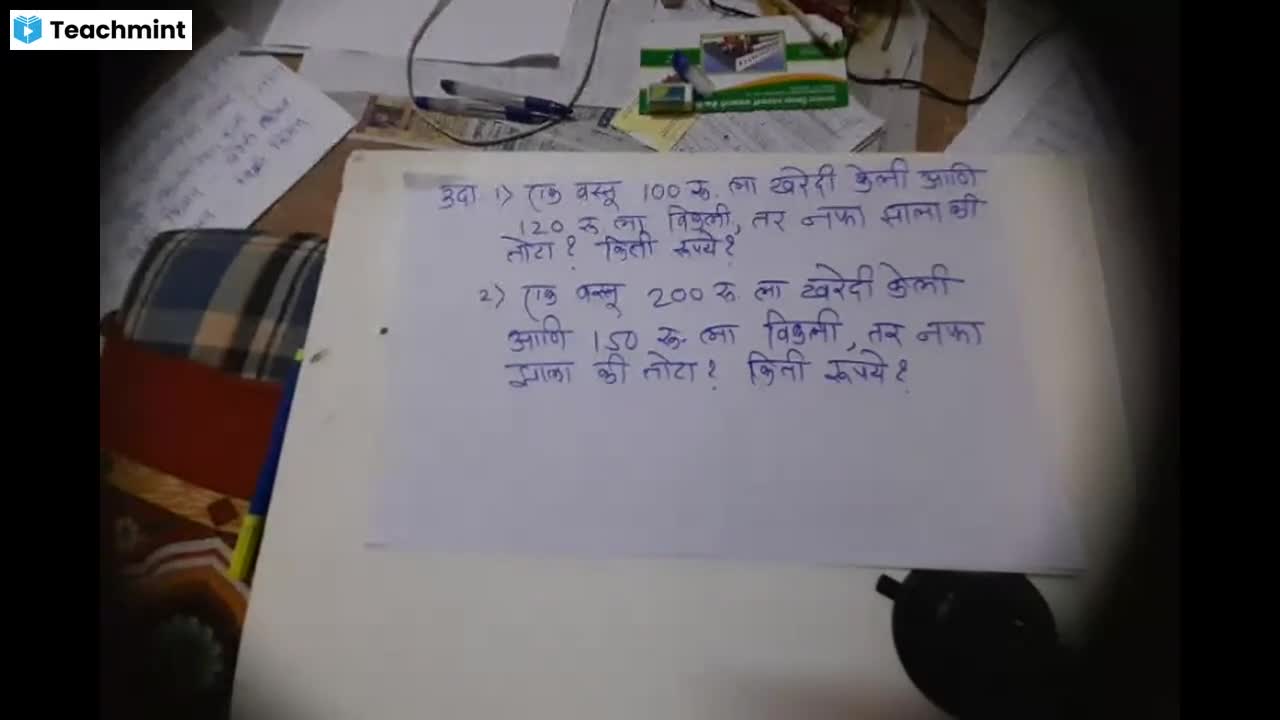 Teachmint
उदा १) एक वस्तू 100 रू. ला खरेदी केली आणि
120 रू. ला विकली, तर नफा झाला की
तोटा? किती रूपये?
2) एक वस्तू 200 रू. ला खरेदी केली
आणि 150 रू. ला विकली, तर नफा
झाला की तोटा? किती रूपये?